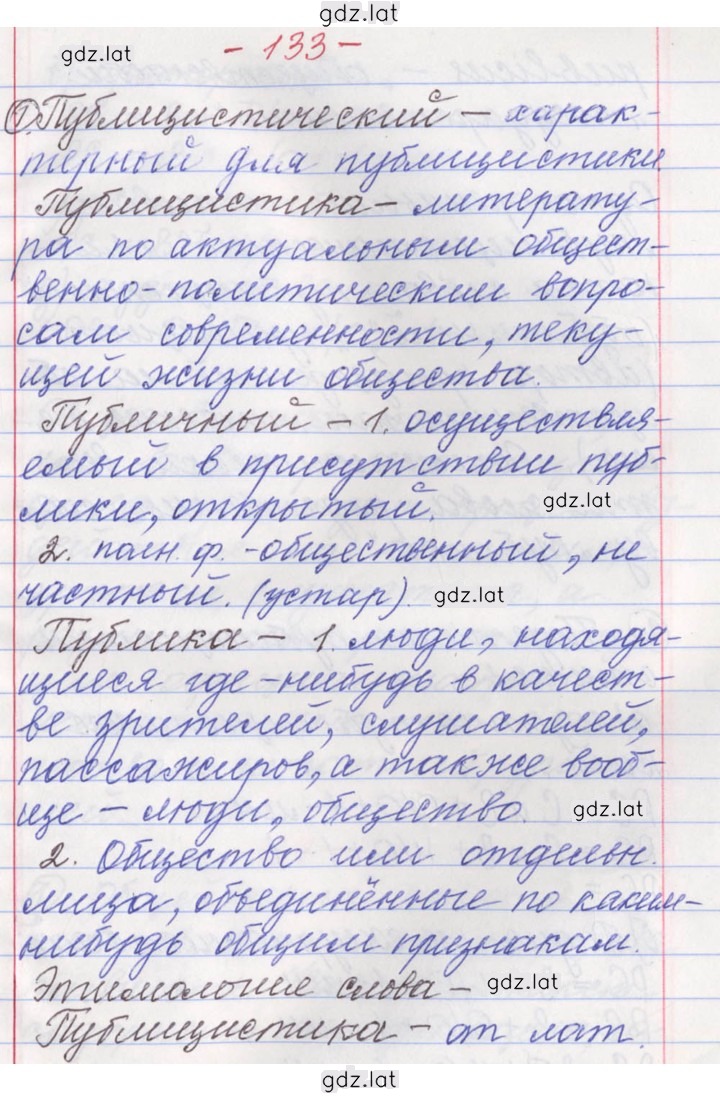 gdz.lat
gdz.lat
- 133 -
① Публицистический – харак-
терный для публицистики
Публицистика – литерату-
ра по актуальным общест-
венно-политическим вопро-
сам современности, теку-
щей жизни общества.
Публичный – 1. осуществля-
емый в присутствии пуб-
лики, открытый.
gdz.lat
2. полн. ф. - общественный, не
частный. (устар).
gdz.lat
Публика – 1. люди, находя-
щиеся где-нибудь в качест-
ве зрителей, слушателей,
пассажиров, а также вооб-
ще – люди, общество.
gdz.lat
2. Общество или отдельн.
лица, объединённые по каким-
нибудь общим признакам.
Этимология слова –
gdz.lat
Публицистика – от лат.
gdz.lat